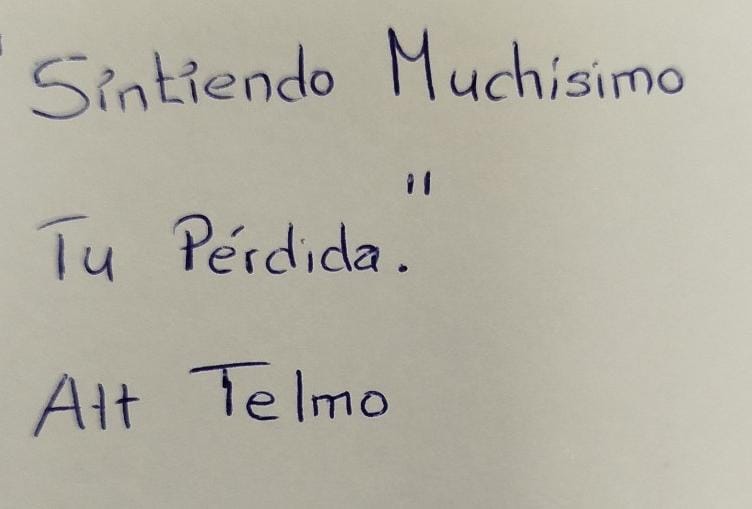 Sintiendo Muchísimo
Tu Pérdida."
Att Telmo